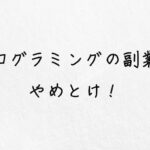 ログラミングの副業
やめとけ！